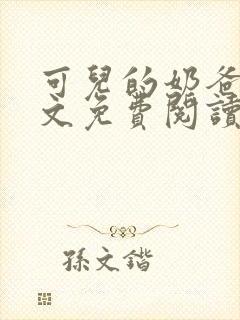 可兒的奶爸
文免費閱讀
孫文鍇